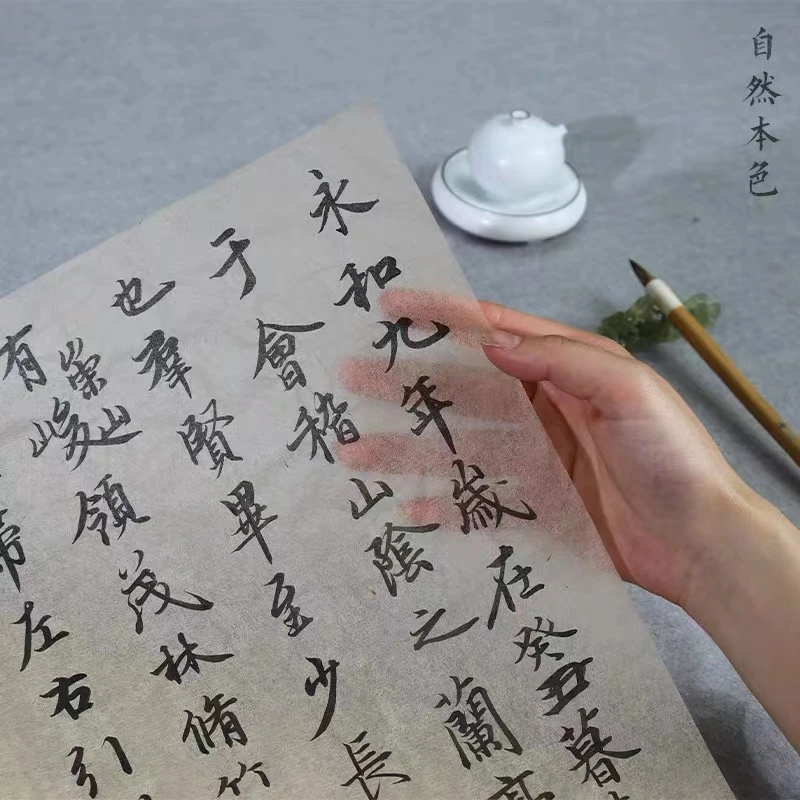 自然本色
永和九年歲在癸丑暮
于會稽山陰之蘭
也羣賢畢至少長
有崇山峻領茂林脩竹
左右引